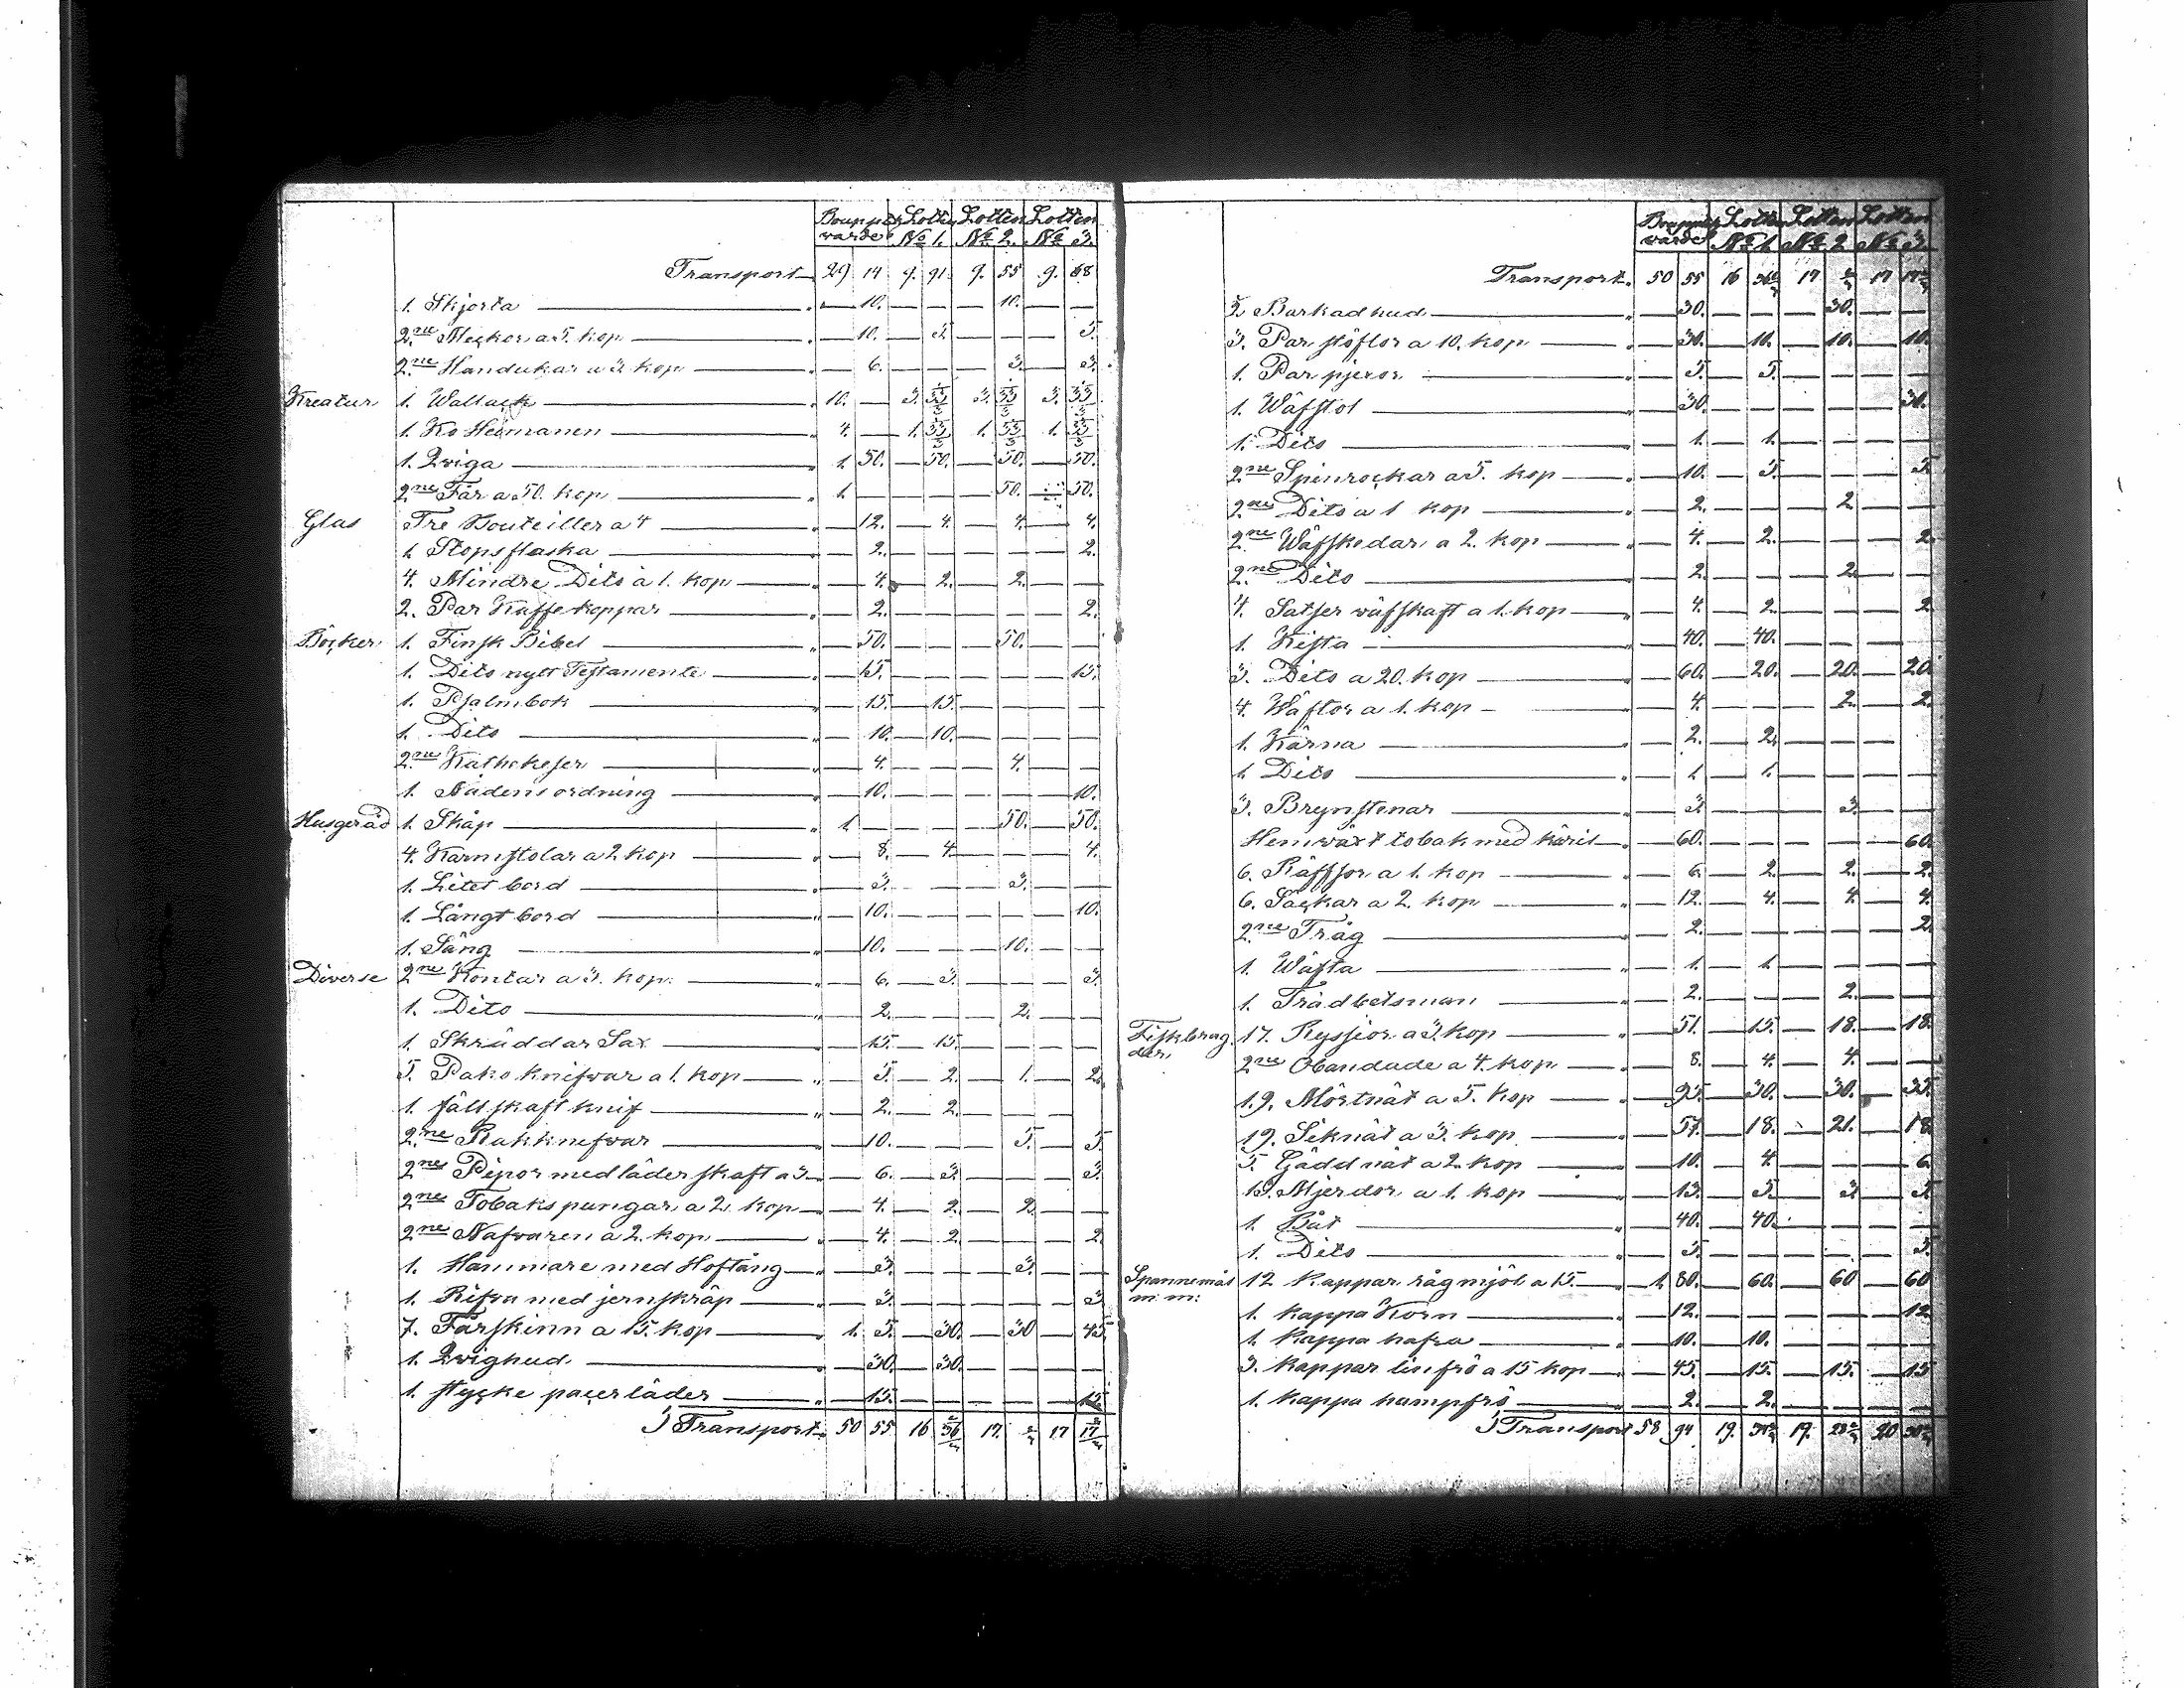 Bouppt. Lotten Lotten Lotten
värde № 1. № 2. № 3.
Transport 29 14 9. 91. 9. 55 9. 68
1. Skjorta " — 10. — — — 10. — —
2ne Säckor a 5. kop " — 10. — 5. — — — 5.
2ne Handukar a 3. kop " — 6. — — — 3. — 3.
Kreatur 1. Wallack " 10. — 3. 33 1/3 3. 33 1/3 3. 33 1/3
1. Ko Heimanen " 4. — 1. 33 1/3 1. 33 1/3 1. 33 1/3
1. Qviga " 1. 50. — 50. — 50. — 50.
2ne Får a 50. kop " 1. — — — — 50. — 50.
Glas Tre Bouteiller a 4 " — 12. — 4. — 4. — 4.
1. Stopsflaska " — 2. — — — — — 2.
4. Mindre Dito à 1. kop " — 4. — 2. — 2. — —
2. Par Kaffekoppar " — 2. — — — — — 2.
Böcker 1. Finsk Bibel " — 50. — — — 50. — —
1. Dito nytt Testamente " — 15. — — — — — 15.
1. Psalmbok " — 15. — 15. — — — —
1. Dito " — 10. — 10. — — — —
2ne Kathekeser " — 4. — — — 4. — —
1. Nådens ordning " — 10. — — — — — 10.
Husgeråd 1. Skåp " 1. — — — — 50. — 50.
4. Karmstolar a 2 kop " — 8. — 4. — — — 4.
1. Litet bord " — 3. — — — 3. — —
1. Långt bord " — 10. — — — — — 10.
1. Säng " — 10. — — — 10. — —
Diverse 2ne Kontar a 3. kop. " — 6. — 3. — — — 3.
1. Dito " — 2. — — — 2. — —
1. Skräddar Sax " — 15. — 15. — — — —
5. Pako knifvar a 1. kop " — 5. — 2. — 1. — 2.
1. fällskaft knif " — 2. — 2. — — — —
2ne Rakknifvar " — 10. — — — 5. — 5.
2ne Pipor med läder skaft a 3 " — 6. — 3. — — — 3.
2ne Tobaks pungar a 2. kop " — 4. — 2. — 2. — —
2ne Nafvaren a 2. kop " — 4. — 2. — — — 2.
1. Hammare med Hoftång " — 3. — — — 3. — —
1. Rifva med jernskråp " — 3. — — — — — 3.
7. Fårskinn a 15. kop " 1. 5. — 30. — 30 — 45.
1. Qvighud " — 30. — 30. — — — —
1. stycke läder " — 15. — — — — — 15.
Transport 50 55 16 17. 17
Bouppt. Lotten Lotten Lotten
värde № 1. № 2. № 3.
Transport. 50 55 16 17 17
Barkad hud " — 30. — — — 30. — —
3. Par stöflor a 10. kop " — 30. — 10. — 10. — 10.
1. Par pjexor " — 5. — 5. — — — —
1. Wäfstol " — 30. — — — — — 30.
1. Dito " — 1. — 1. — — — —
2ne Spinrockar a 5. kop " — 10. — 5. — — — 5.
2ne Dito a 1 kop " — 2. — — — 2. — —
2ne Wäfskedar a 2. kop " — 4. — 2. — — — 2.
2ne Dito " — 2. — — — 2. — —
4. Satser wäfskaft a 1. kop " — 4. — 2. — — — 2.
1. Kista " — 40. — 40. — — — —
3. Dito a 20. kop " — 60. — 20. — 20. — 20.
4. Wäftor a 1. kop " — 4. — — — 2. — 2.
1. Kärna " — 2. — 2. — — — —
1. Dito " — 1. — 1. — — — —
3. Brynstenar " — 3. — — — 3. — —
Hemväxt tobak med käril " — 60. — — — — — 60.
6. Räffsor a 1. kop " — 6. — 2. — 2. — 2.
6. Säckar a 2. kop " — 12. — 4. — 4. — 4.
2ne Tråg " — 2. — — — — — 2.
1. Wäfta " — 1. — 1. — — — —
1. Trädbetsman " — 2. — — — 2. — —
Fiskbrag
der, 17. Ryssjor a 3. kop " — 51. — 15. — 18. — 18.
2ne Obandade a 4. kop " — 8. — 4. — 4. — —
19. Mörtnät a 5. kop " — 95. — 30. — 30. — 35.
19. Siknät a 3. kop " — 57. — 18. — 21. — 18.
5. Gäddnät a 2 kop " — 10. — 4. — — — 6.
13. Mjerdor a 1. kop " — 13. — 5. — 3. — 5.
1. Båt " — 40. — 40. — — — —
1. Dito " — 5. — — — — — 5.
Spannemål
m: m: 12 kappar rågmjöl a 15. " 1. 80. — 60. — 60 — 60
1. kappa Korn " — 12. — — — — — 12
1. kappa hafra " — 10. — 10. — — — —
3. kappar linfrö a 15 kop " — 45. — 15. — 15. — 15
1. kappa hampfrö " — 2. — 2. — — — —
Transport 58 94 19. 19. 20